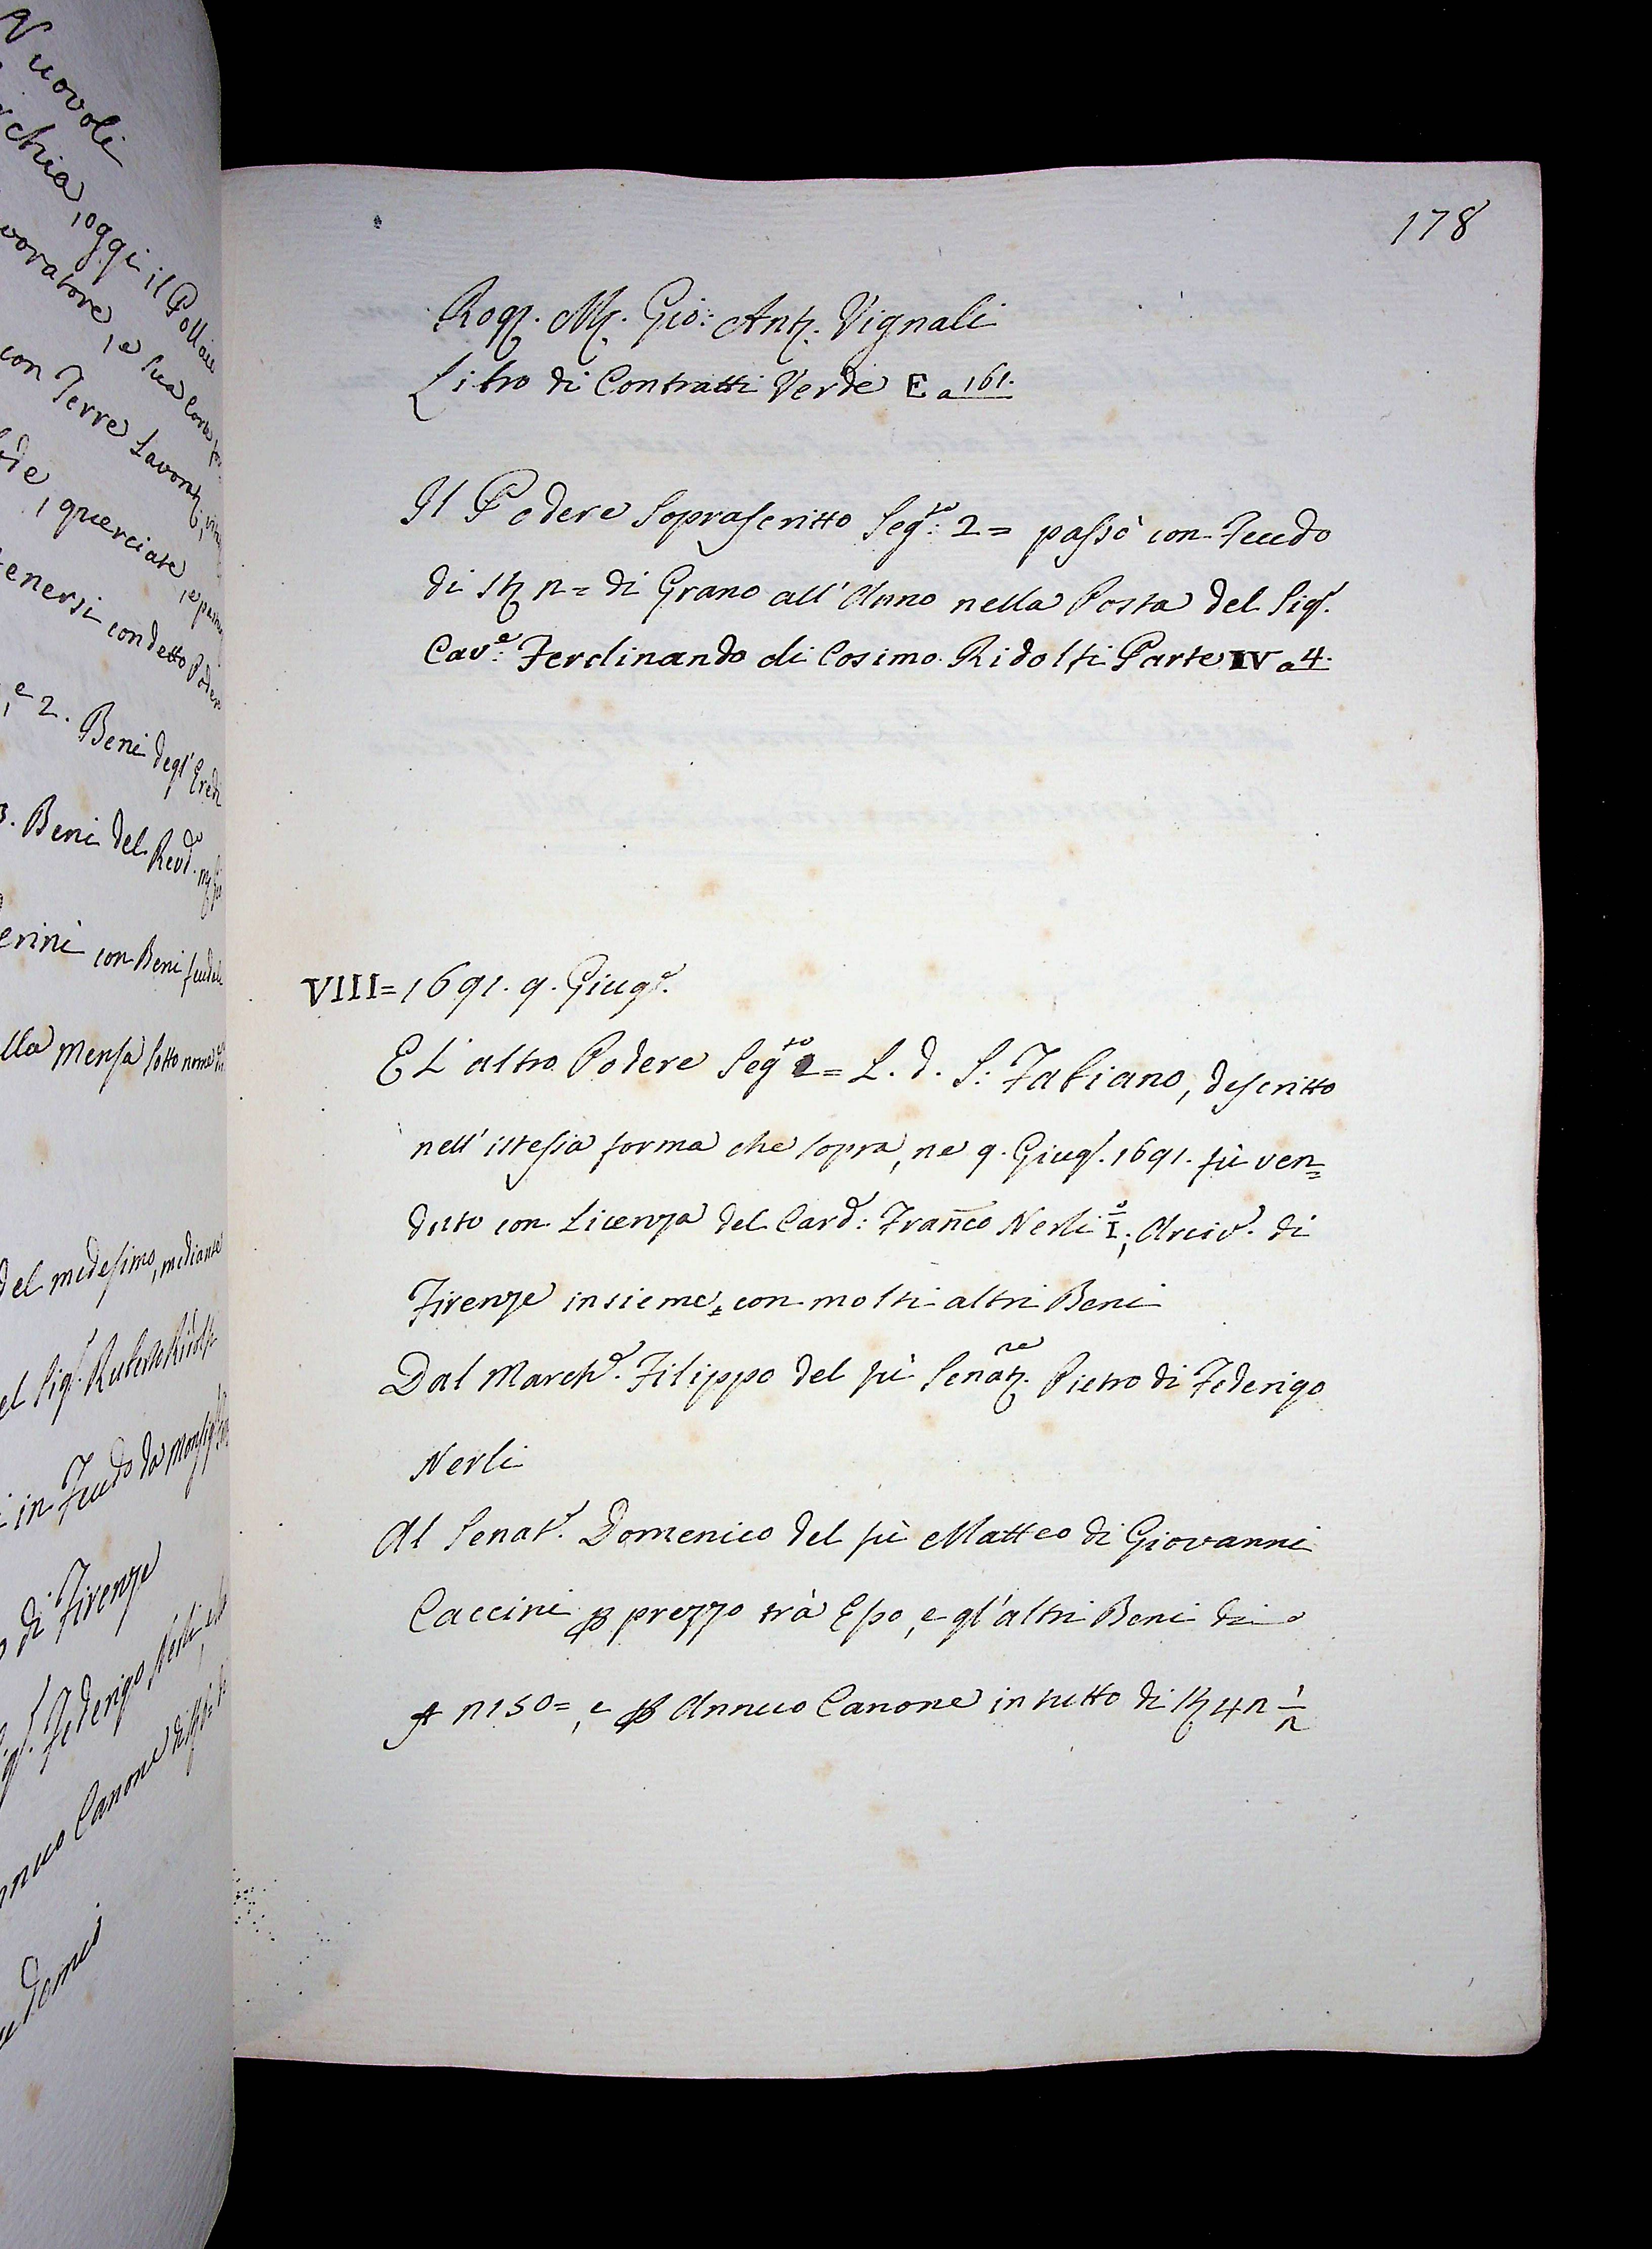 Nuovoli
chia, oggi il Pollai
voratore, e sua
con Terre Lavorat;
, querciate, e
tenersi con detto Podere
, e 2. Beni degl' Eredi
3. Beni del Revd.
erini con Beni feudali
lla Mensa sotto nome
del medesimo, mediante
el Sigr. Ruberto Ridolfi
in Feudo da Monsigr.
o di Firenze
Sigr. Federigo Nerli,
nnuo Canone di
178
Rogt. Mr. Gio: Antt. Vignali
Libro di Contratti Verde E a 161.
Il Podere soprascritto Segto: 2= passò con Feudo
di st n= di Grano all' Anno nella Posta del Sigr.
Cave: Ferdinando di Cosimo Ridolfi Parte IV a 4.
VIII= 1691. 9. Giugo.
E L' altro Podere Segto 2= L. d. S: Fabiano, descritto
nell' istessa forma che sopra, ne 9. Giugo. 1691. fù ven=
duto con Licenza del Card: Franco Nerli I°; Arciv. di
Firenze insieme, con molti altri Beni
Dal March. Filippo del fù Senatre. Pietro di Federigo
Nerli
Al Senatr. Domenico del fù Matteo di Giovanni
Caccini p prezzo trà Esso, e gl' altri Beni di
n150=, e p Annuo Canone in tutto di st 4n 1/n